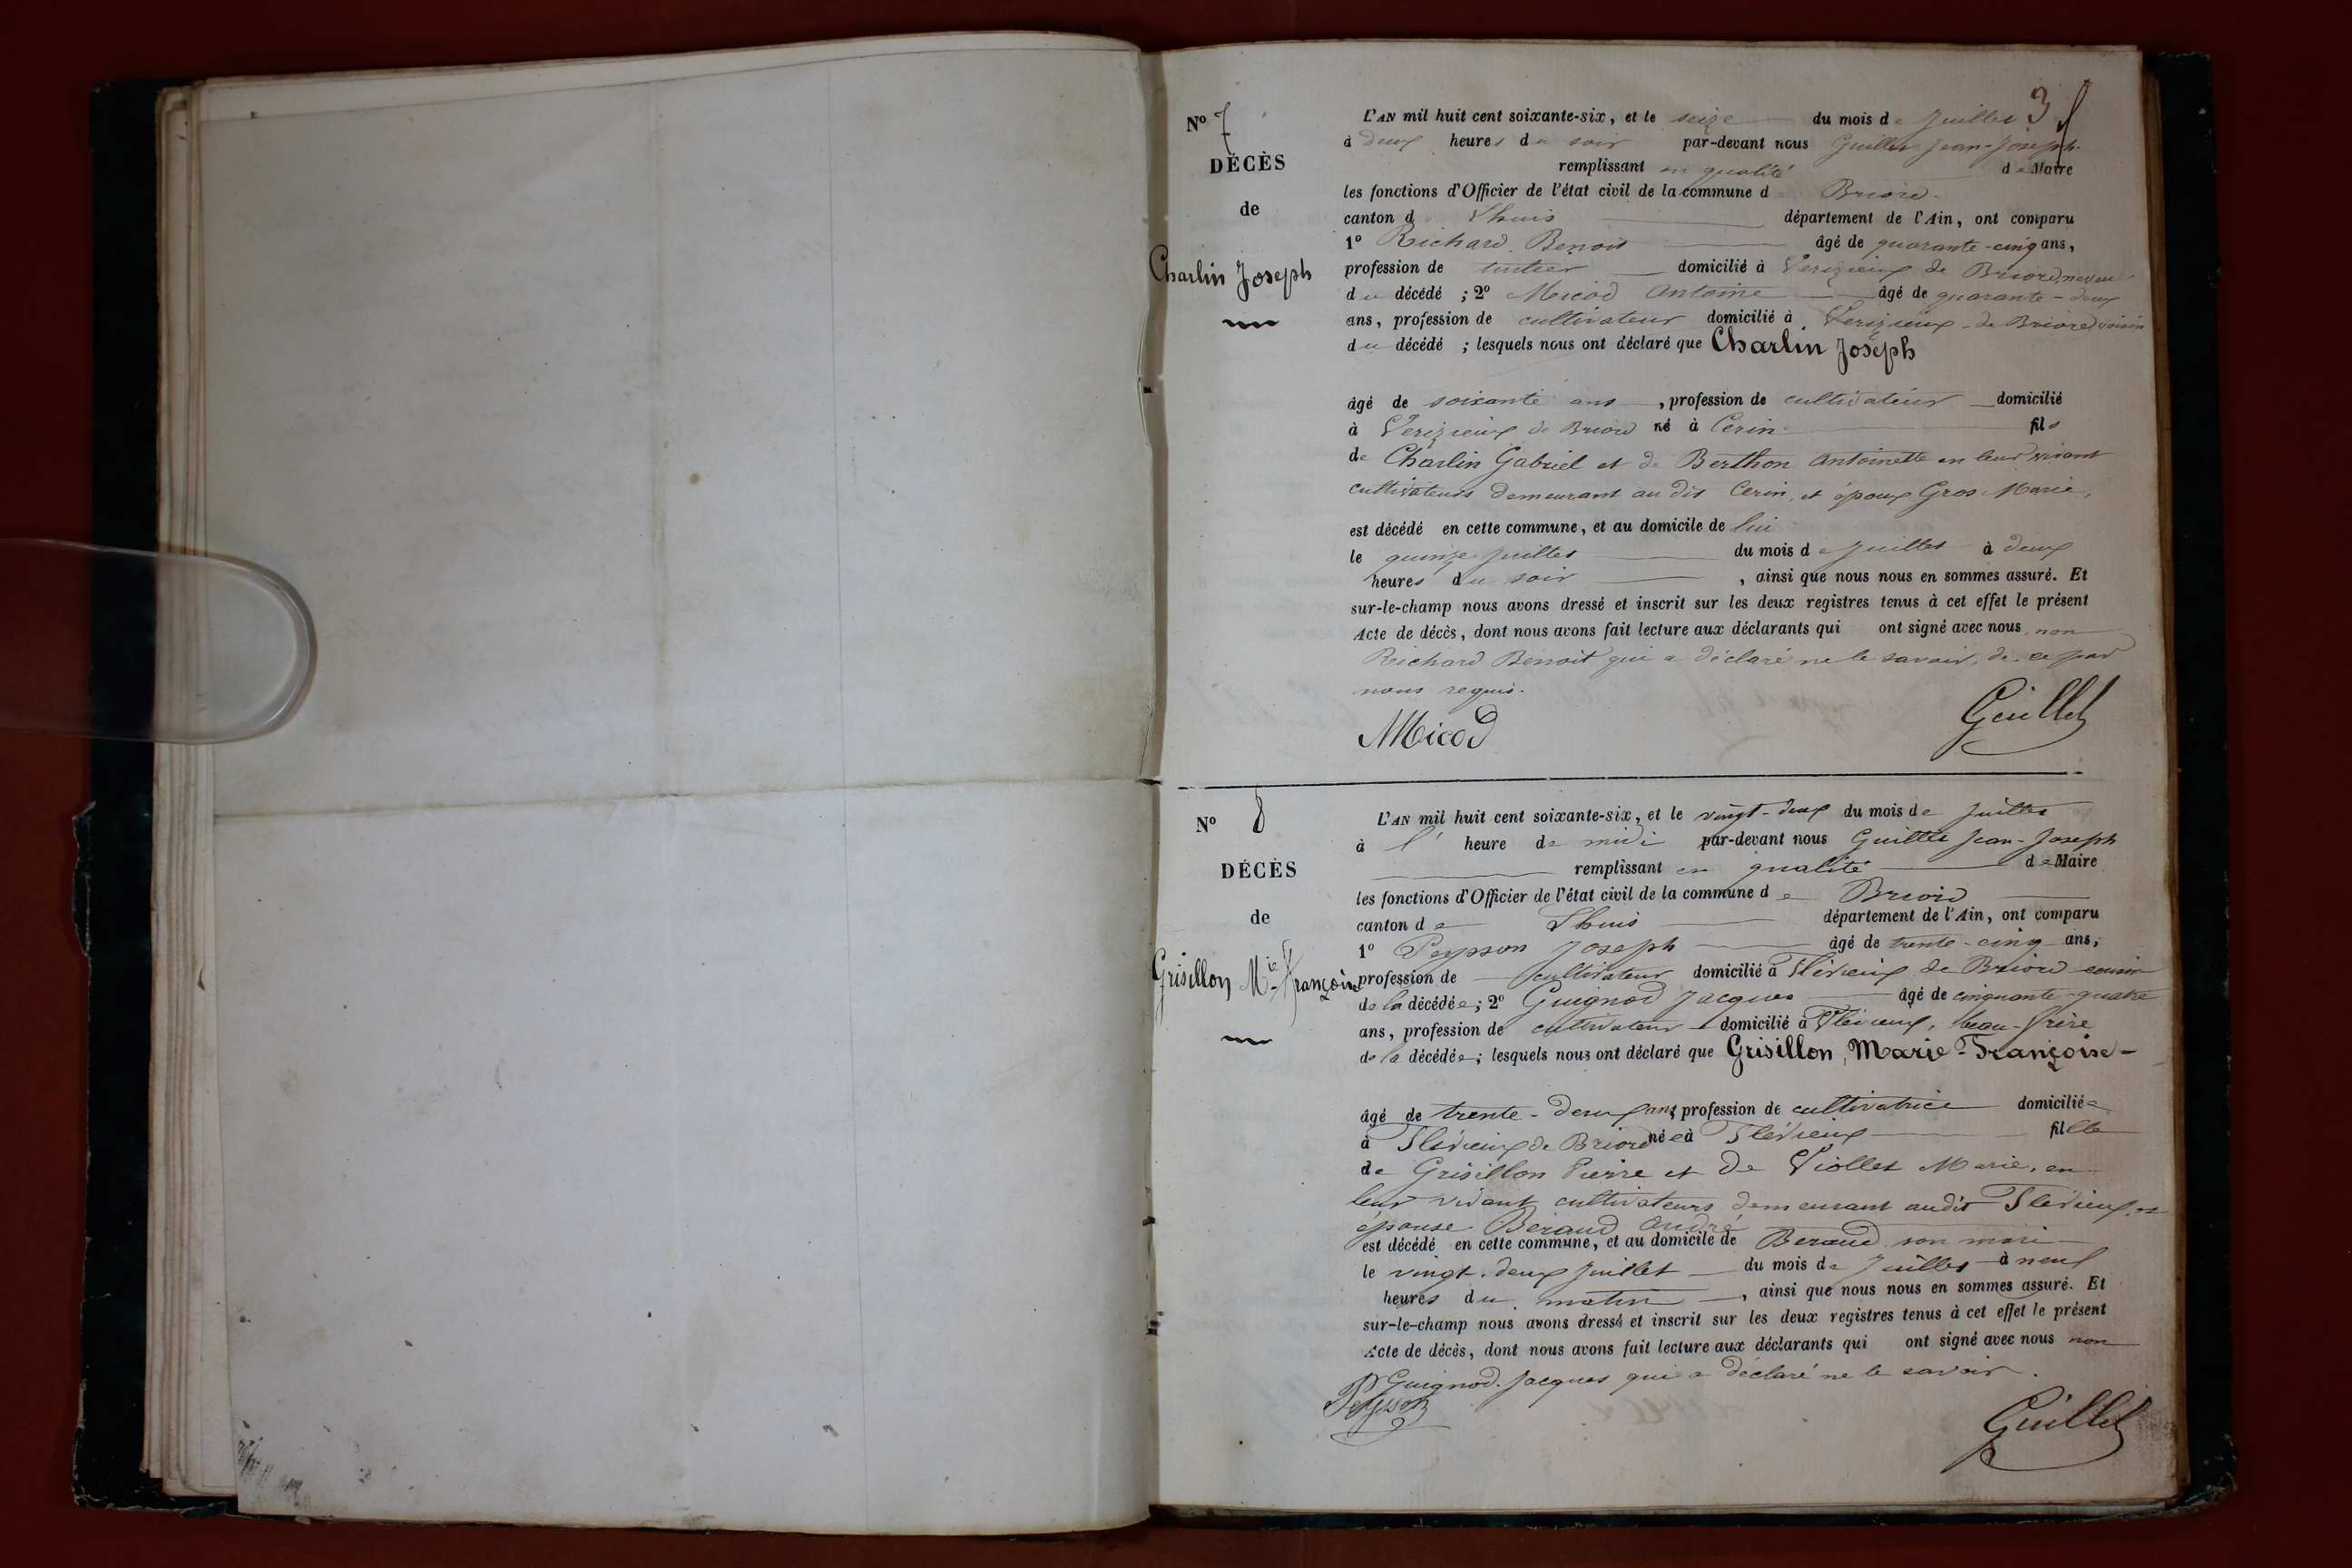 3
N° 7
DÉCÈS
de
Charlin Joseph
L'AN mil huit cent soixante-six, et le seize du mois de Juillet
à deux heures du soir par-devant nous Guillet Jean-Joseph
remplissant en qualité de Maire
les fonctions d'Officier de l'état civil de la commune d Briord
canton d Lhuis département de l'Ain, ont comparu
1° Richard Benoit âgé de quarante-cinq ans,
profession de domicilié à Verizieux de Briord, neveu
du décédé ; 2° Micod Antoine âgé de quarante-deux
ans, profession de cultivateur domicilié à Verizieux de Briord, voisin
du décédé ; lesquels nous ont déclaré que Charlin Joseph
âgé de soixante ans, profession de cultivateur domicilié
à Verizieux de Briord né à Cerin fils
de Charlin Gabriel et de Berthon Antoinette en leur vivant
cultivateurs demeurant au dit Cerin, et époux Gros Marie,
est décédé en cette commune, et au domicile de lui
le quinze juillet du mois de Juillet à deux
heures du soir, ainsi que nous nous en sommes assuré. Et
sur-le-champ nous avons dressé et inscrit sur les deux registres tenus à cet effet le présent
Acte de décès, dont nous avons fait lecture aux déclarants qui ont signé avec nous non
Richard Benoit qui a déclaré ne le savoir, de ce par
nous requis.
Micod Guillet
N° 8
DÉCÈS
de
Grisillon Mie Françoise
L'AN mil huit cent soixante-six, et le vingt-deux du mois de Juillet
à l' heure de midi par-devant nous Guillet Jean-Joseph
remplissant en qualité de Maire
les fonctions d'Officier de l'état civil de la commune de Briord
canton de Lhuis département de l'Ain, ont comparu
1° Peysson Joseph âgé de trente-cinq ans,
profession de cultivateur domicilié à Flévieux de Briord cousin
de la décédée ; 2° Guignod Jacques âgé de cinquante-quatre
ans, profession de cultivateur domicilié à Flévieux, beau-frère
de la décédée ; lesquels nous ont déclaré que Grisillon, Marie-Françoise-
âgé de trente-deux ans, profession de cultivatrice domiciliée
à Flévieux de Briord née à Flévieux fille
de Grisillon Pierre et de Viollet Marie, en
leur vivant cultivateurs demeurant audit Flévieux, et
épouse Beraud André
est décédé en cette commune, et au domicile de Beraud son mari
le vingt-deux juillet du mois de Juillet à neuf
heures du matin, ainsi que nous nous en sommes assuré. Et
sur-le-champ nous avons dressé et inscrit sur les deux registres tenus à cet effet le présent
Acte de décès, dont nous avons fait lecture aux déclarants qui ont signé avec nous non
Guignod Jacques qui a déclaré ne le savoir.
Peysson Guillet